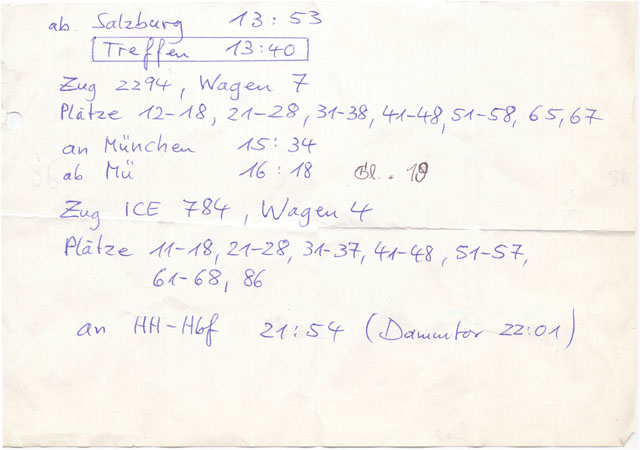 ab Salzburg 13:53
Treffen 13:40
Zug 2294, Wagen 7
Plätze 12-18, 21-28, 31-38, 41-48, 51-58, 65, 67
an München 15:34
ab Mü 16:18 Gl. 19
Zug ICE 784, Wagen 4
Plätze 11-18, 21-28, 31-37, 41-48, 51-57,
61-68, 86
an HH-Hbf 21:54 (Dammtor 22:01)